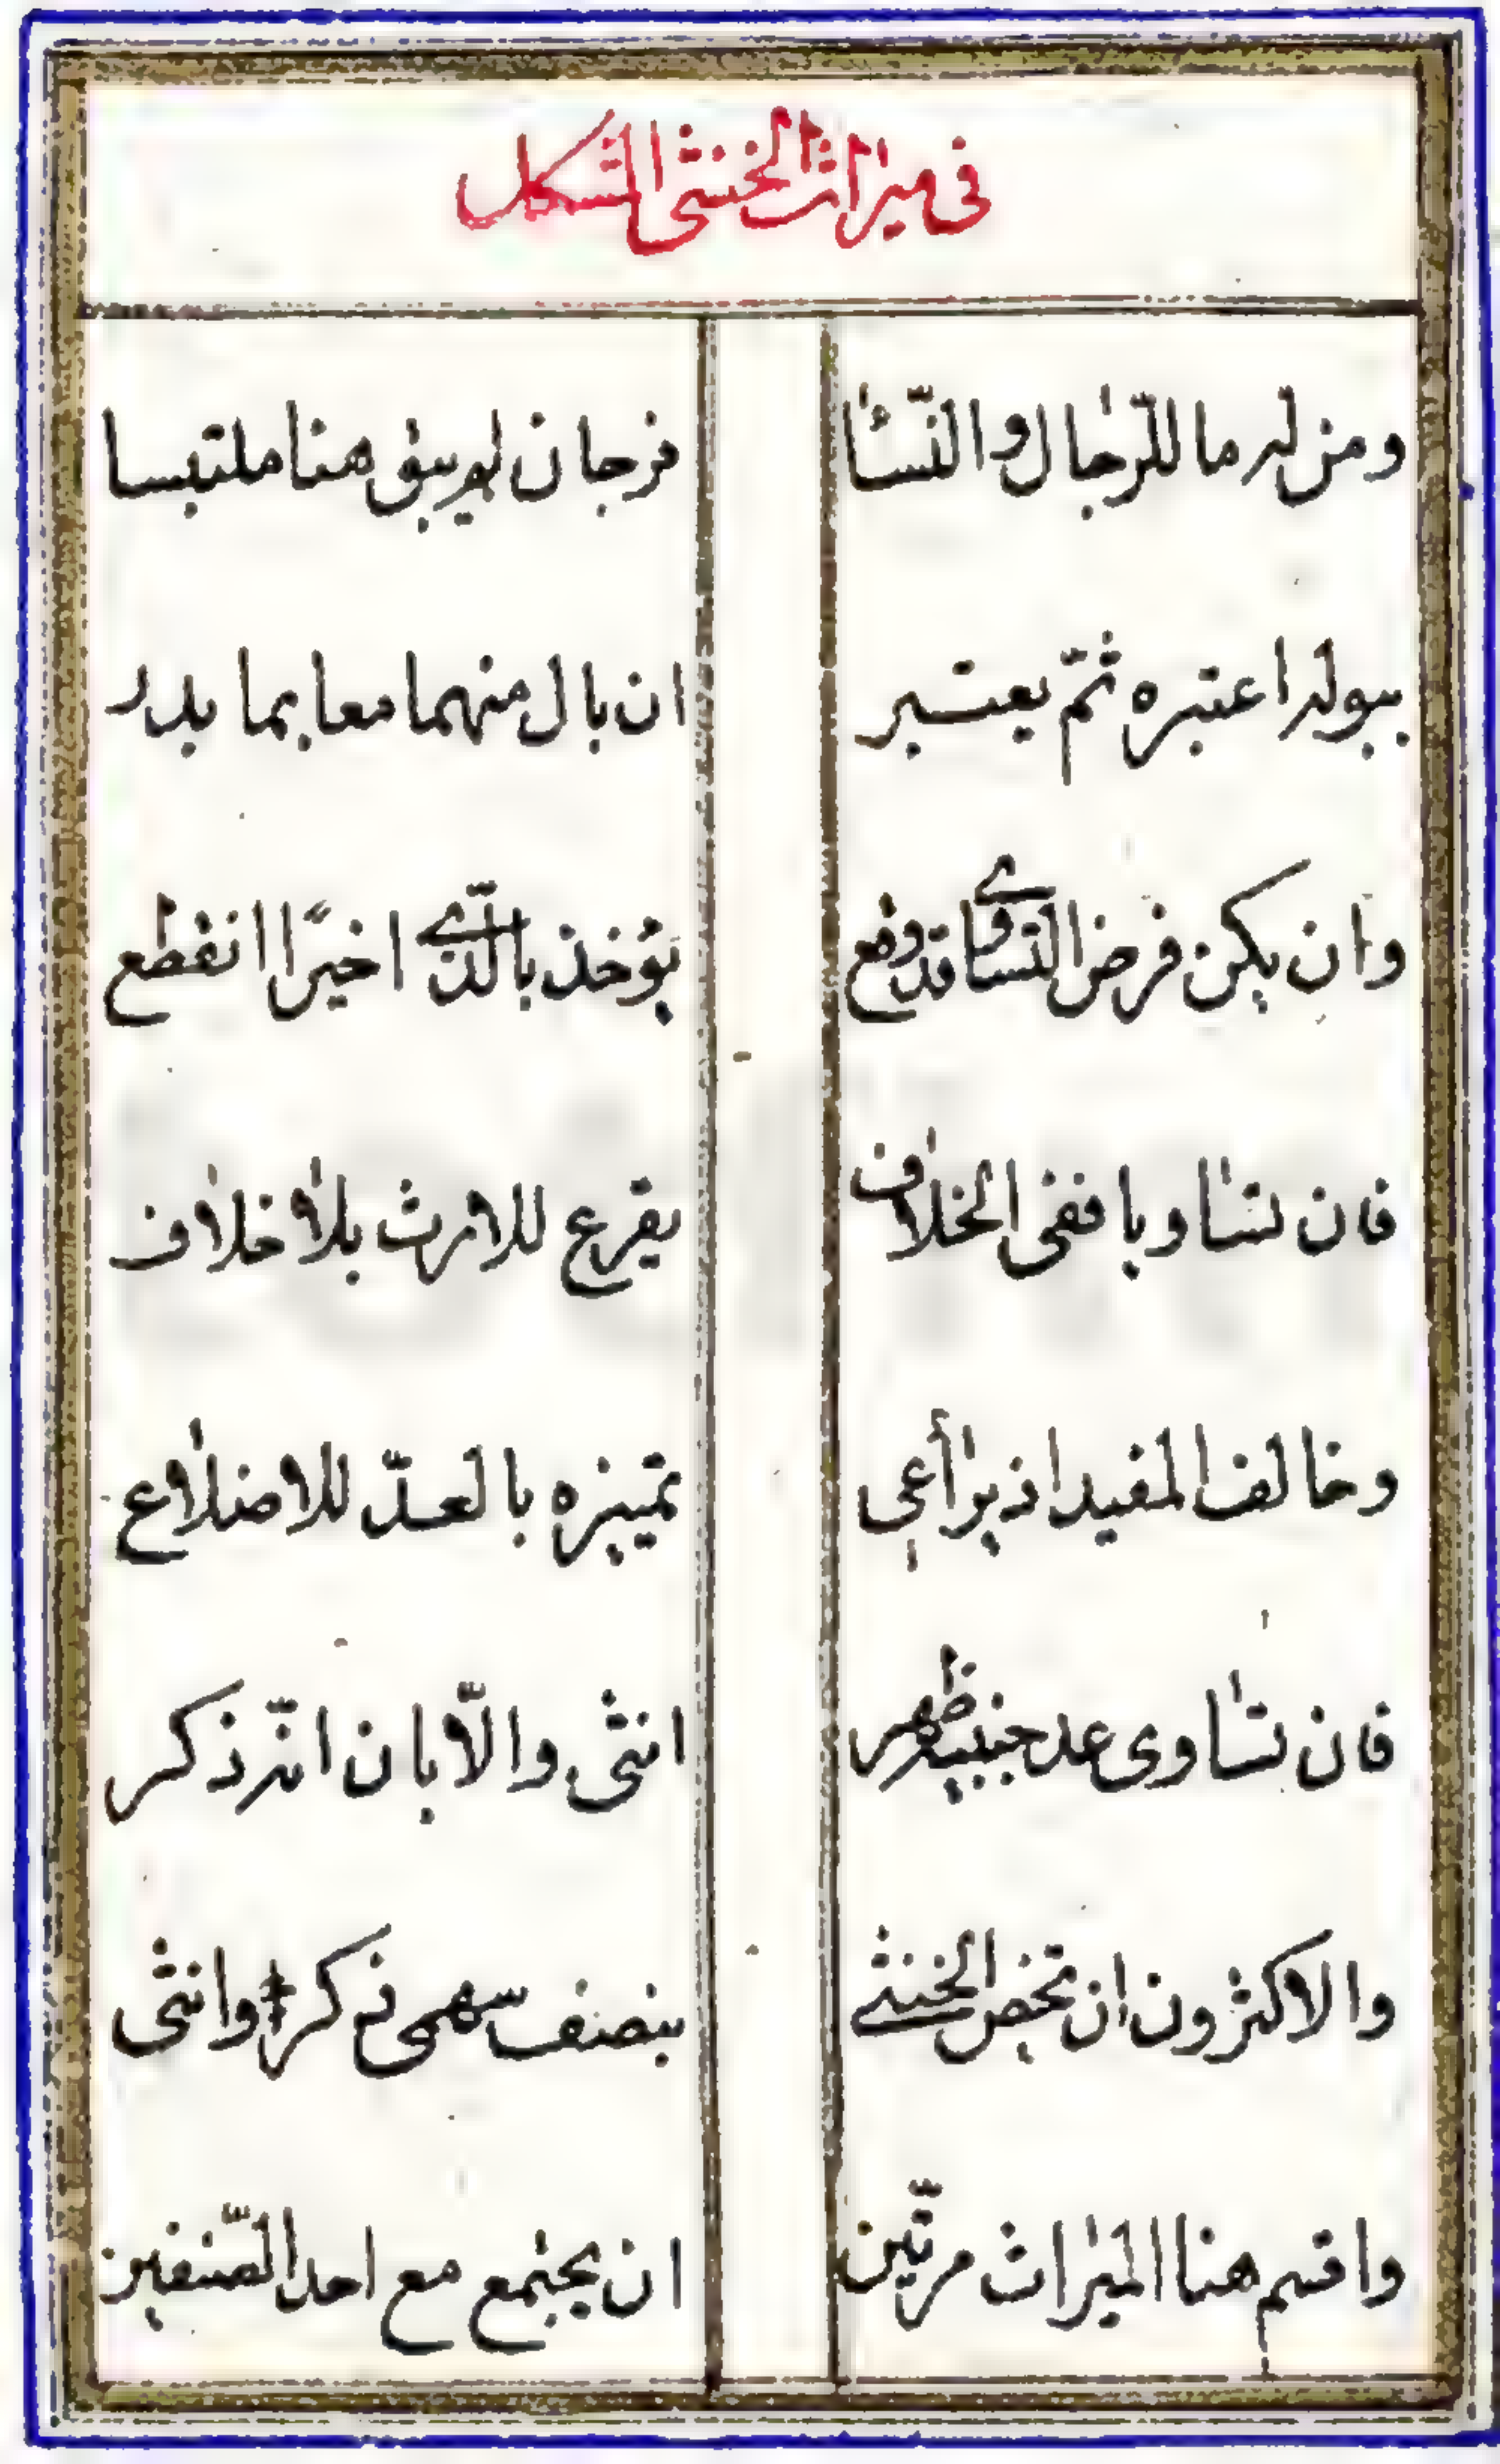 فی میراث الخنثی المشکل
ومن له ما للرّجال والنّسا فرجان لم یبق هنا ملتبسا
ببوله اعتبره ثمّ یعتبر ان بال منهما معا بما بدر
وان یکن فرض التساوی قد وقع یؤخذ بالّذی اخیرًا انقطع
فان تساویا ففی الخلاف یقرع للارث بلا خلاف
وخالف المفید اذ یراعی تمییزه بالعدّ للاضلاع
فان تساوی عد جنبیه ظهر انثی والّا بان انّه ذکر
والاکثرون ان تخص الخنثی بنصف سهمی ذکر وانثی
واقسم هنا المیراث مرّتین ان یجتمع مع احد الصّنفین